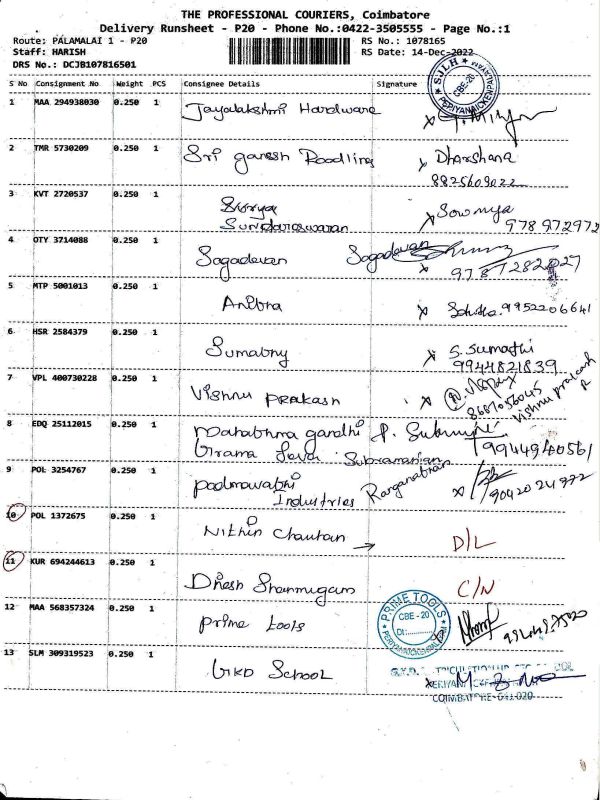 THE PROFESSIONAL COURIERS, Coimbatore
Delivery Runsheet - P20 - Phone No.:0422-3505555 - Page No.:1
Route: PALAMALAI 1 - P20 RS No.: 1078165
Staff: HARISH RS Date: 14-Dec-2022
DRS No.: DCJB107816501
S No Consignment No Weight PCS Consignee Details Signature
SJLH CBE-20 PERIYANAICKENPALAYAM
1 MAA 294938030 0.250 1 Jayalakshmi Hardware x
2 TMR 5730209 0.250 1 Sri ganesh Roodling x Dharshana
8825609022
3 KVT 2720537 0.250 1 Surya x Sowmya
Sundareswaran 978 972972
4 OTY 3714088 0.250 1 Sagadevan Sagadevan
x 9787282027
5 MTP 5001013 0.250 1 Anitha x 9952206641
6 HSR 2584379 0.250 1 Sumathy x S. Sumathi
9944821839
7 VPL 400730228 0.250 1 Vishnu Prakash x
8687056045 Vishnu prakash P
8 EDQ 25112015 0.250 1 Mahathma gandhi P.
Grama Seva Subramanian 9944940561
9 POL 3254767 0.250 1 padmavathi Ranganathan
Industries x 9042024972
10 POL 1372675 0.250 1 Nithin Chauhan → D/L
11 KUR 694244613 0.250 1 Dhesh Shanmugam C/N
12 MAA 568357324 0.250 1 Prime tools PRIME TOOLS CBE - 20 Dt: PERIYANAICKENPALAYAM
13 SLM 309319523 0.250 1 GKD School
COIMBATORE-641 020